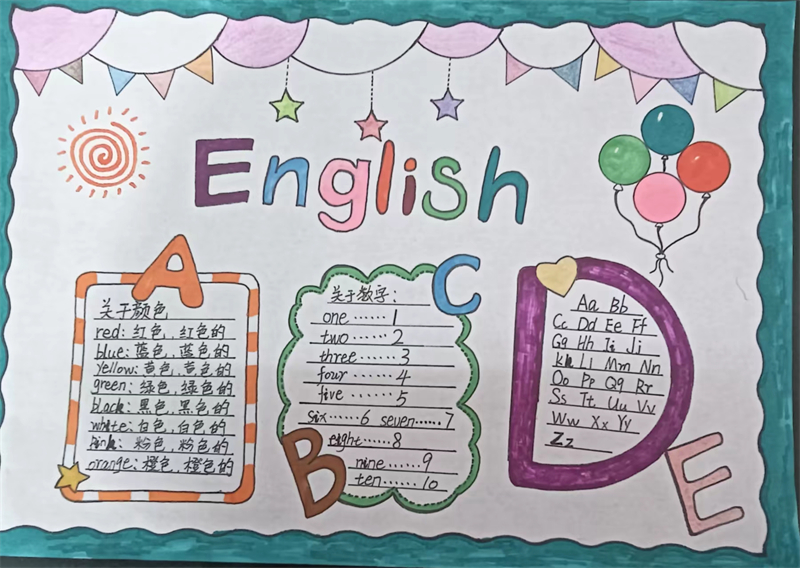 English
A
关于颜色
red: 红色, 红色的
blue: 蓝色, 蓝色的
Yellow: 黄色, 黄色的
green: 绿色, 绿色的
black: 黑色, 黑色的
white: 白色, 白色的
pink: 粉色, 粉色的
orange: 橙色, 橙色的
B
C
关于数字:
one ······ 1
two ······ 2
three ······ 3
four ······ 4
five ······ 5
six ······ 6 seven ······ 7
eight ······ 8
nine ······ 9
ten ······ 10
D
Aa Bb
Cc Dd Ee Ff
Gg Hh Ii Jj
Kk Ll Mm Nn
Oo Pp Qq Rr
Ss Tt Uu Vv
Ww Xx Yy
Zz
E